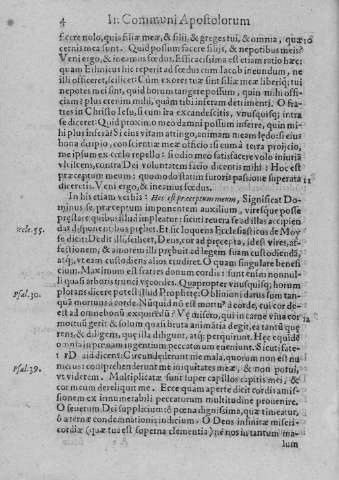 4 In Communi Apostolorum
facere nolo, quia filiæ meæ, & filii, & greges tui, & omnia, quæ
cernis mea sunt. Quid possum facere filijs, & nepotibus meis?
Veni ergo, & ineamus fœdus. Efficacissima est etiam ratio hæc:
quam Ethnicus hic reperit ad fœdus cum Iacob ineundum, ne
illi officiat, scilicet: Cum exorer tuæ sint filiæ meæ liberiq; tui
nepotes mei sint, quid bonum tangere possum, quin mihi offi-
ciam? plus etenim mihi, quàm tibi inferam detrimenti. O fra-
tres in Christo Iesu, si cum ira excandescitis, vnusquisq; intra
se diceret: Quid proximo meo damni possum inferre, quin mi-
hi plus inferã? Si eius vitam attingo, animam meam lędo: si eius
bona diripio, conscientiæ meæ officio: si eum à terra projcio,
me ipsum ex cœlo repello: si odio meo satisfacere volo iniuriã
vlciscens, contra Dei voluntatem facio dicentis mihi: Hoc est
præceptum meum: quomodo statim futoris passione superata
diceretis. Veni ergo, & ineamus fœdus.
In his etiam verbis: Hoc est præceptum meum, Significat Do-
minus se præceptum imponentem auxilium, viresque posse
pręstare quibus illud impleatur: sicuti revera se ad illas accipien
Eccle. 35. das disponentibus prębet. Et sic loquens Ecclesiasticus de Moy
se dicit: Dedit illi, scilicet, Deus, cor ad pręcepta, idest vires, af-
fectionem, & amorem illi prębuit ad legem suam custodiendã,
atq; vt eam custodiens alios erudiret. O quam singulare benefi
cium. Maximum est fratres donum cordis: sunt enim nonnul-
li quasi arbores trunci vęcordes. Quapropter vnusquisq; horum
Psal. 30. plorans dicere potest illud Prophetę: Oblivioni datus sum tan-
quã mortuus à corde. Nũquid nõ est mortuꝰ à corde, cui cor de-
est ad omne bonũ exquirẽdũ? Vę misero, qui in carne viua cor
mortuũ gerit & solum quasi bruta animãtia degit, ea tantũ quę-
rens, & diligens, quę illa diligunt, atq; perquirunt. Hęc equidẽ
omnia in pœnam ingentium peccatorum eueniunt. Sicut fate-
tur David dicens: Circundederunt me mala, quorum non est nu
Psal. 39. merus: comprehenderunt me iniquitates meæ, & non potui,
vt viderem. Multiplicatæ sunt super capillos capitis mei, &
cor meum dereliquit me. Ecce quam aperte dicit cordis amis-
sionem ex innumerabili peccatorum multitudine prouenire.
O seuerum Dei supplicium: ô pœna dignissima, quæ timeatur,
ô æternæ condemnationis indicium. O Deus infinitæ miseri-
cordiæ (quæ tui est superna clementia) ne nos in tantum ma-
lum